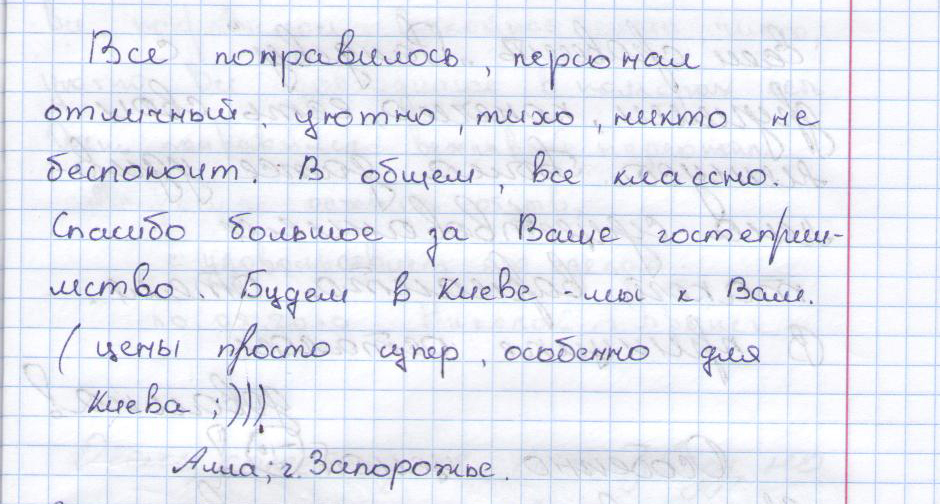 Все понравилось, персонал
отличный, уютно, тихо, никто не
беспокоит. В общем, все классно.
Спасибо большое за Ваше гостеприи-
мство. Будем в Киеве - мы к Вам.
(цены просто супер, особенно для
Киева ;)))
Алла; г. Запорожье.